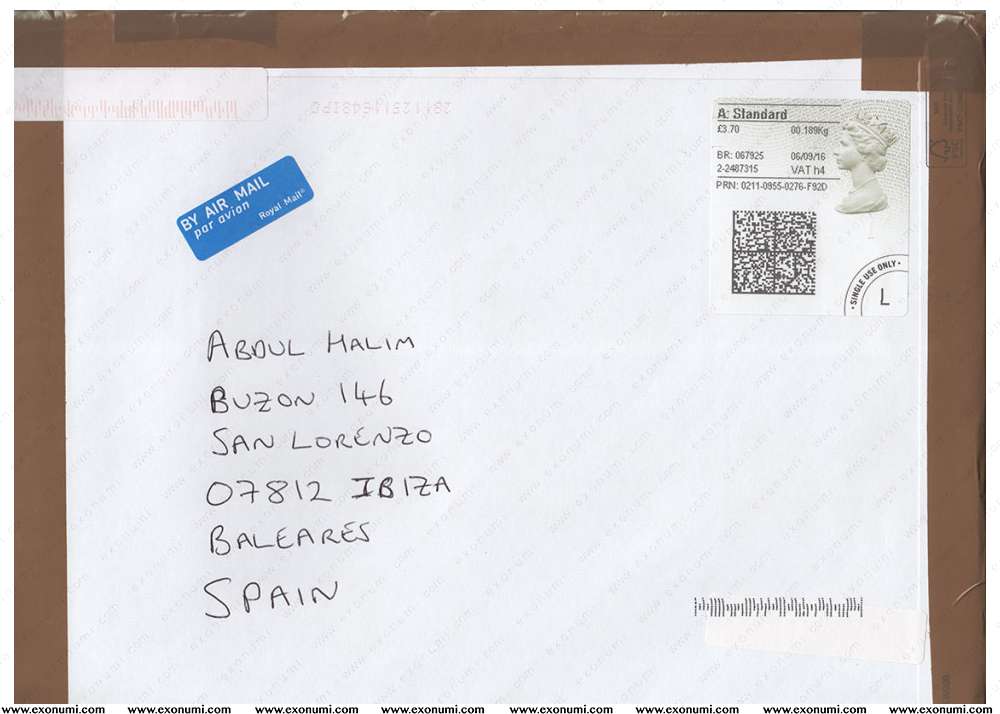 A: Standard
£3.70 00.189Kg
BR: 067925 06/09/16
2-2487315 VAT h4
PRN: 0211-0955-0276-F92D
• SINGLE USE ONLY •
L
BY AIR MAIL
par avion
Royal Mail®
ABDUL HALIM
BUZON 146
SAN LORENZO
07812 IBIZA
BALEARES
SPAIN
www.exonumi.com www.exonumi.com www.exonumi.com www.exonumi.com www.exonumi.com www.exonumi.com www.exonumi.com www.exonumi.com